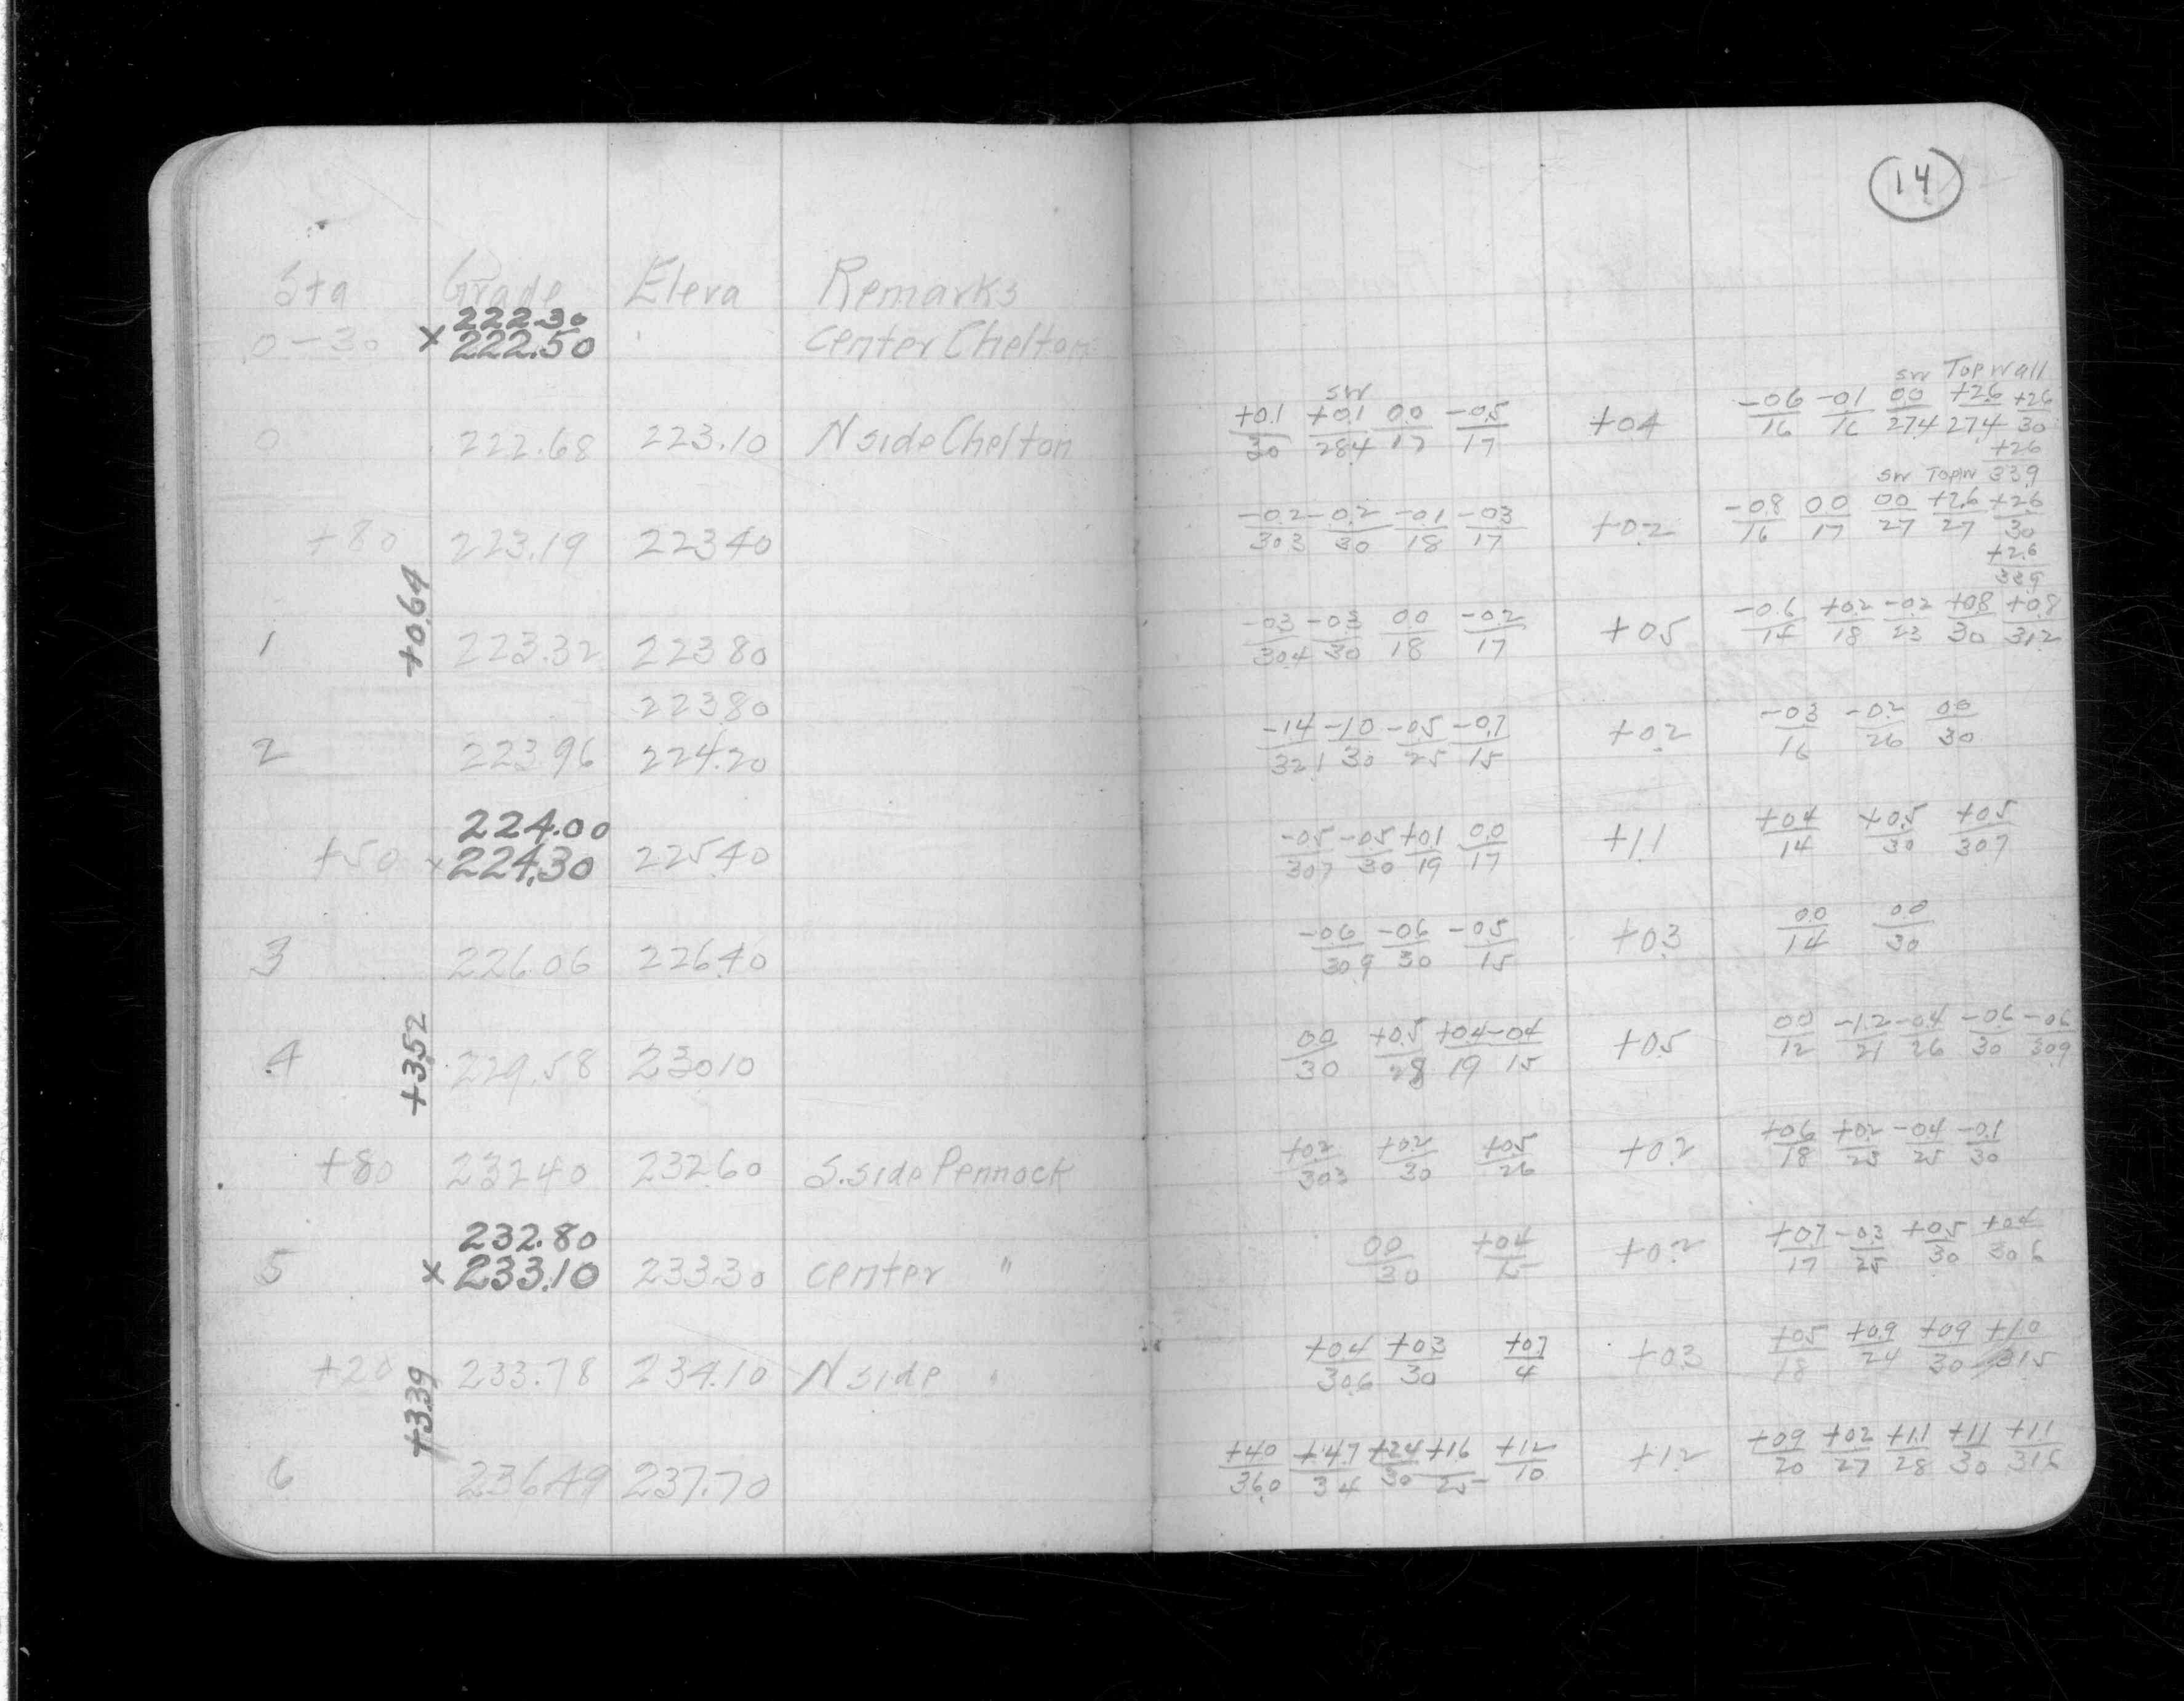 14
Sta Grade Eleva Remarks
222.30
0-30 × 222.50 Center Chelton
0 222.68 223.10 N side Chelton
+80 223.19 223 40
+0.64
1 223.32 223 80
223.80
2 223 96 224.20
224.00
+50 × 224.30 225.40
3 226 06 226.40
+3.52
4 229.58 230 10
+80 232 40 232.60 S. side Pennock
232.80
5 × 233.10 233.30 center "
+20 233.78 234.10 N side "
+3.39
6 236.49 237.70
SW Top Wall
SW
+0.1 +0.1 0.0 -0.5 +0.4 -0.6 -0.1 0.0 +2.6 +2.6
30 28.4 17 17 16 16 27.4 27.4 30
+2.6
SW Top W 33.9
-0.2 -0.2 -0.1 -0.3 +0.2 -0.8 0.0 0.0 +2.6 +2.6
30.3 30 18 17 16 17 27 27 30
+2.6
33.9
-0.3 -0.3 0.0 -0.2 +0.5 -0.6 +0.2 -0.2 +0.8 +0.8
30.4 30 18 17 14 18 23 30 31.2
-1.4 -1.0 -0.5 -0.7 +0.2 -0.3 -0.2 0.0
32.1 30 25 15 16 26 30
-0.5 -0.5 +0.1 0.0 +1.1 +0.4 +0.5 +0.5
30.7 30 19 17 14 30 30.7
-0.6 -0.6 -0.5 +0.3 0.0 0.0
30.9 30 15 14 30
0.0 +0.5 +0.4 -0.4 +0.5 0.0 -1.2 -0.4 -0.6 -0.6
30 28 19 15 12 21 26 30 30.9
+0.2 +0.2 +0.5 +0.2 +0.6 +0.2 -0.4 -0.1
30.3 30 26 18 23 25 30
0.0 +0.4 +0.2 +0.7 -0.3 +0.5 +0.4
30 15 17 25 30 30.6
+0.4 +0.3 +0.7 +0.3 +0.5 +0.9 +0.9 +1.0
30.6 30 4 18 24 30 31.5
+4.0 +4.7 +2.4 +1.6 +1.2 +1.2 +0.9 +0.2 +1.1 +1.1 +1.1
36.0 34 30 25 10 20 27 28 30 31.6